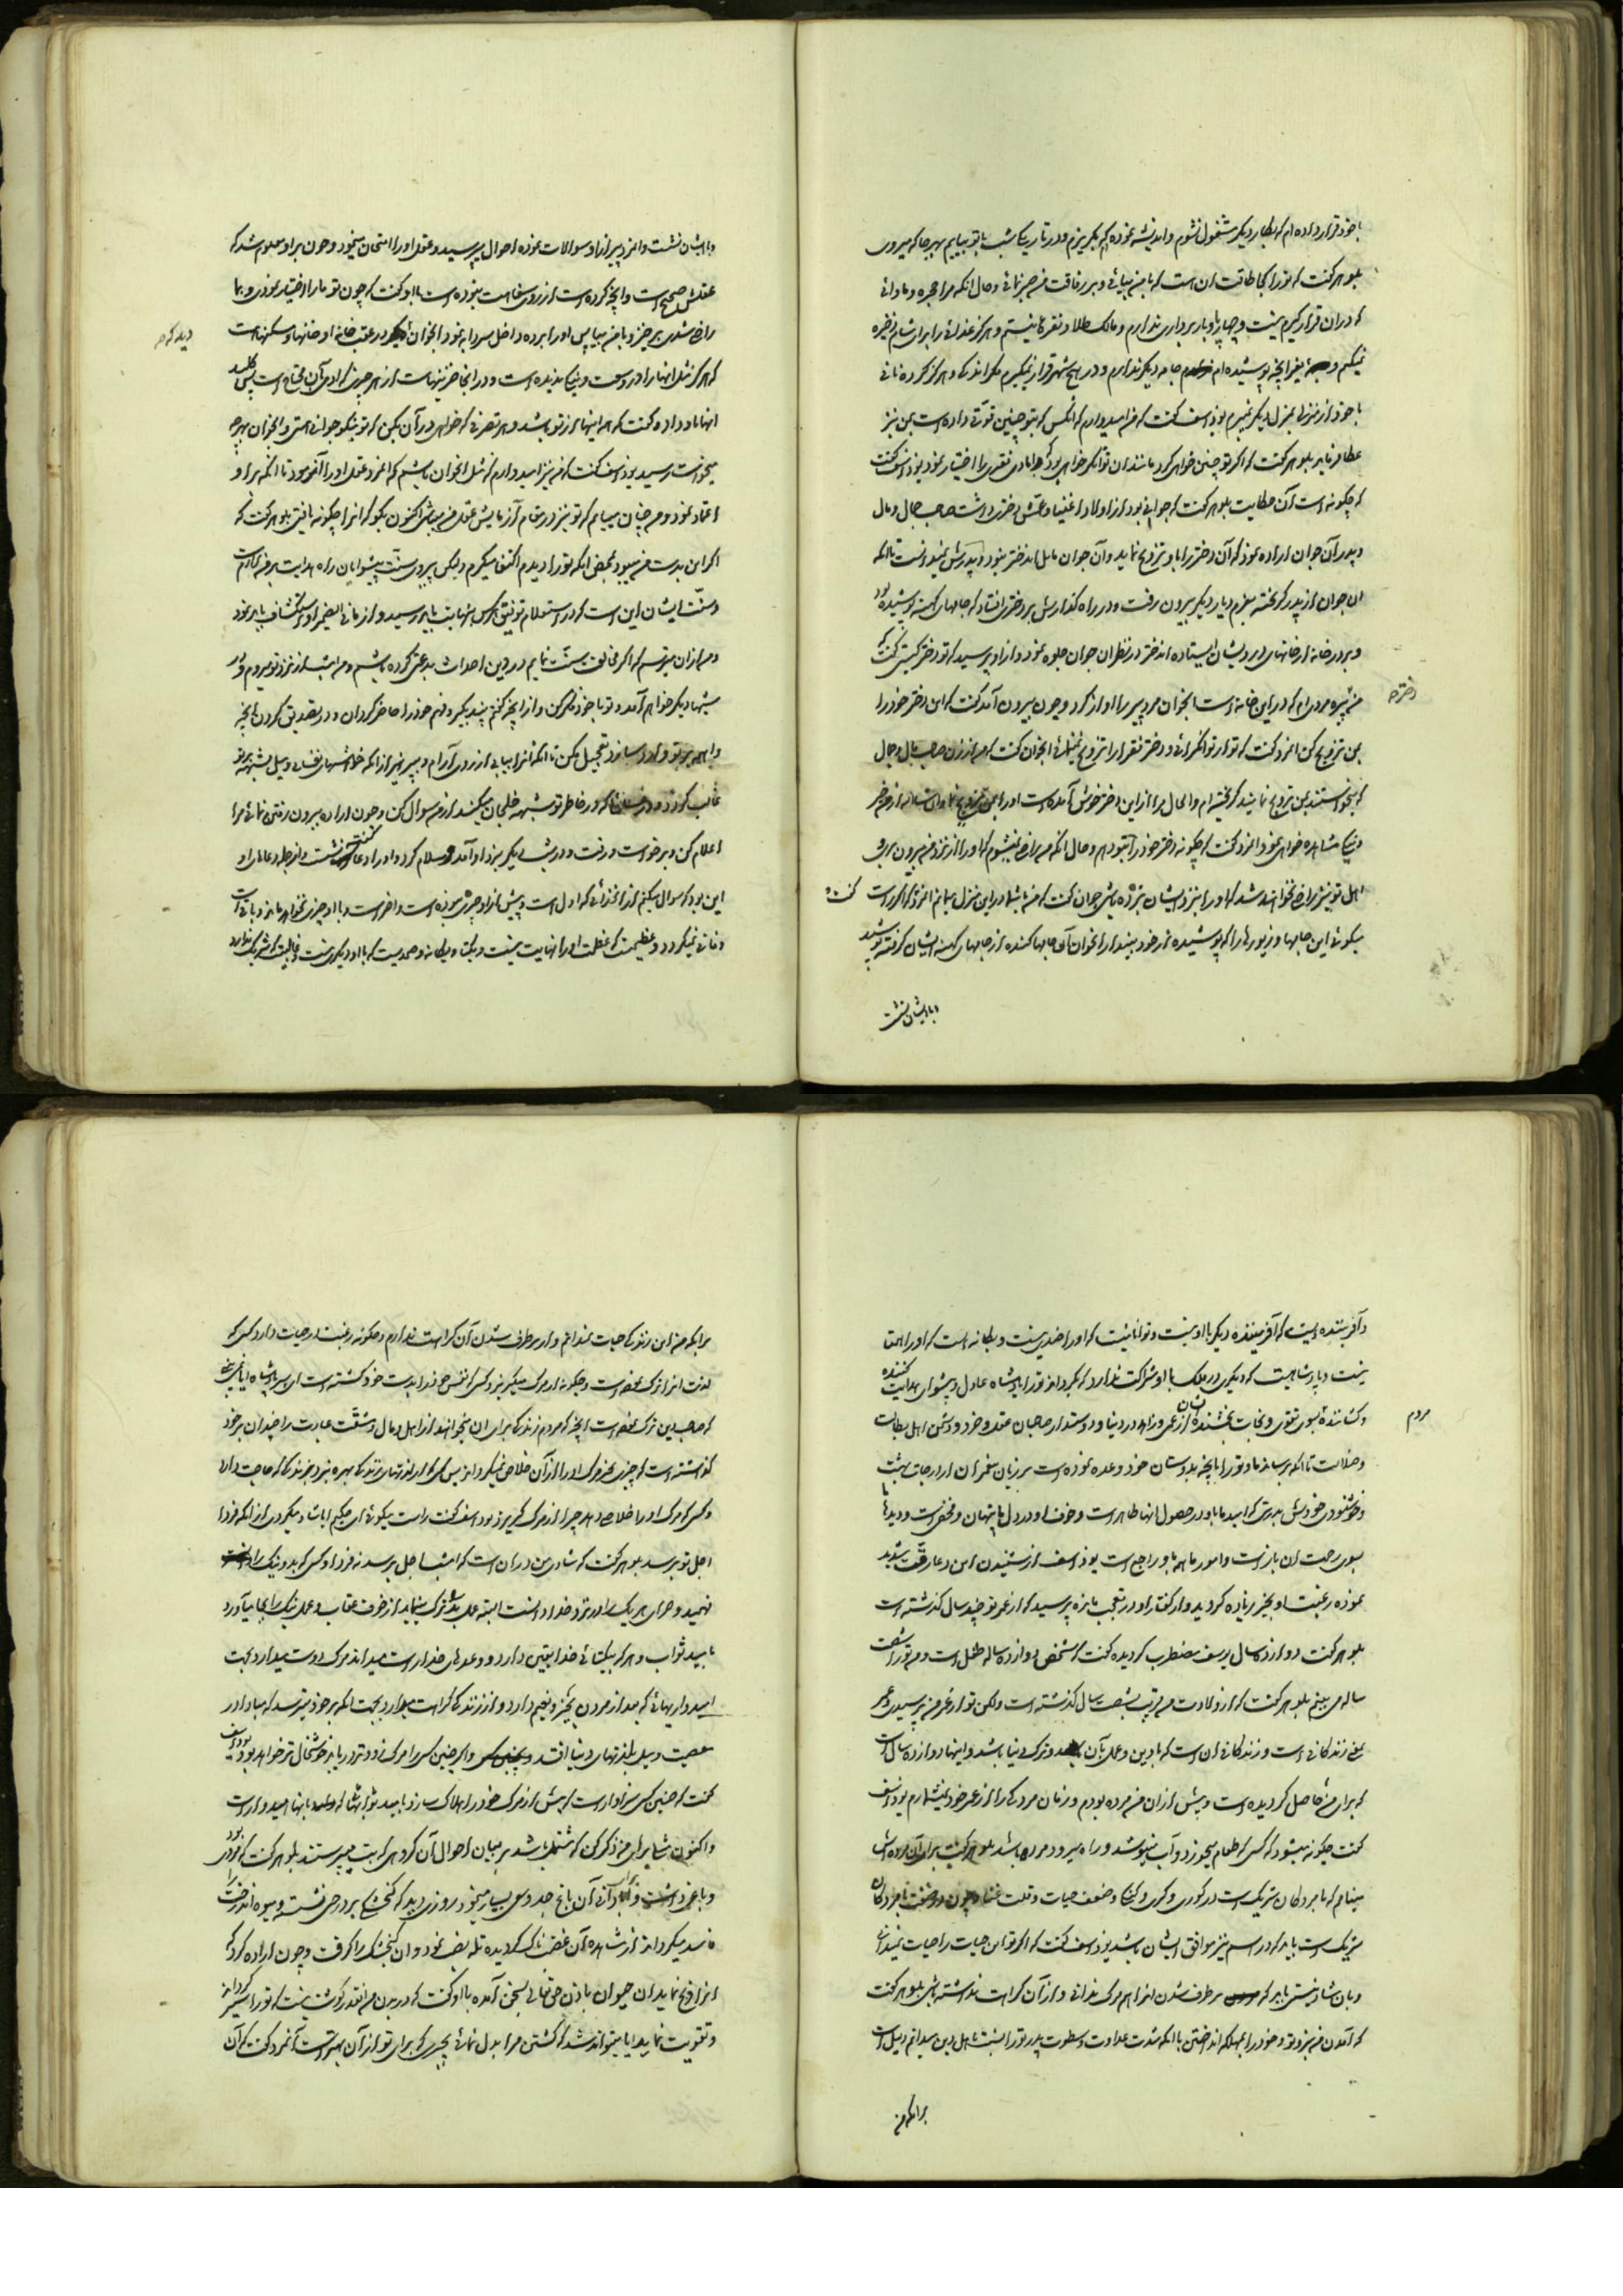 با خود قرار داده ام که بکار دیگر مشغول نشوم و اندیشه نموده ام که بگریزم و در تاریکی شب با تو بیایم بهر جا که میروی
بلوهر گفت که تو را کجا طاقت آن است که با من بیائی و بر رفاقت من صبر نمائی و حال آنکه مرا حجره و ماوائی
که در آن قرار گیرم نیست و چهارپا و باربرداری ندارم و مالک طلا و نقره نیستم و هرگز غذائی را برای شام ذخیره
نمیکنم و بغیر آنچه پوشیده ام جامه دیگر ندارم و در هیچ شهر قرار نمیگیرم مگر اندکی و هرگز گرده نانی
با خود از منزلی بمنزل دیگر نمیبرم یوذاسف گفت که من امیدوارم که آنکس که بتو چنین قوتی داده است بمن نیز
عطا فرماید بلوهر گفت که اگر تو چنین خواهی کرد مانند آن توانگر خواهی بود که دامادی فقیری را اختیار نمود یوذاسف گفت
که چگونه است آن حکایت بلوهر گفت که جوانی بود از اولاد اغنیا و عمش دختری داشت صاحب جمال و مال
و پدر آن جوان اراده نمود که آن دختر را باو تزویج نماید و آن جوان مایل آن دختر نبود و پدرش نمیدانست تا آنکه
آن جوان از پدر گریخته بعزم دیار دیگر بیرون رفت و در راه گذارش بر دختری افتاد که جامهای کهنه پوشیده بود
و بر در خانه از خانهای درویشان ایستاده آن دختر در نظر آن جوان جلوه نمود و از او پرسید که تو دختر کیستی گفت که
من دختر پیر مردی ام که در این خانه است آنجوان مرد پیر را آواز کرد و چون بیرون آمد گفت که این دختر خود را
بمن تزویج کن آنمرد گفت که تو از توانگرانی و دختر فقرا را تزویج نمینمائی آنجوان گفت که من از زن صاحب مال و جمال
که میخواستند بمن تزویج نمایند گریخته ام و الحال مرا از این دختر خوش آمده است او را بمن تزویج نما و انشاالله از من خیر
و نیکی مشاهده خواهی نمود آنمرد گفت که چگونه دختر خود را بتو دهم و حال آنکه من راضی نمیشوم که او را از نزد من بیرون بری و
اهل تو نیز راضی نخواهند شد که او را بنزد ایشان ببری جوان گفت که من با شما در این منزل میمانم آنمرد گفت که اگر راست
میگوئی این جامها و زیورها را که پوشیده از خود بینداز آنجوان آن جامها کنده از جامهای کهنه ایشان گرفته پوشید
و با ایشان نشست
دختر
گفت
و با ایشان نشست و آنمرد پیر از او سوالات نموده احوال پرسید و عقل او را امتحان مینمود و چون بر او معلوم شد که
عقلش صحیح است و آنچه کرده است از روی سفاهت نبوده است با او گفت که چون تو ما را اختیار نمودی و بما
راضی شدی برخیز و با من بیا پس او را برده داخل سردابه نمود آنجوان دید که در عقب خانه او خانها و مسکنهاست
که هرگز مثل آنها را در وسعت و نیکی ندیده است و در آنجا خزینهاست از هر چیزی که آدمی بآن محتاج است پس کلید
آنها باو داد و گفت که همه اینها از تو باشد و هر تصرفی که خواهی در آن بکن که تو نیکو جوانی هستی و آنجوان بهرچه
میخواست رسید یوذاسف گفت که من نیز امیدوارم که مثل آنجوان باشم که آنمرد عقل او را آزمود تا آنکه بر او
اعتماد نمود و من چنان مییابم که تو نیز در مقام آزمایش عقل من میباشی اکنون بگو که آنرا چگونه یافتی بلوهر گفت که
اگر این بدست من میبود بمحض اینکه تو را دیدم اکتفا میکردم و لیکن پیروی سنت پیشوایان راه هدایت بر من لازم است
و سنت ایشان این است که در استعلام توفیق هر کس بنهایت باید رسید و از ما فی الضمیر او استکشاف باید نمود
و من از آن میترسم که اگر مخالفت سنت نمایم در دین احداث بدعتی کرده باشم و من امشب از نزد تو میروم و در
شبهای دیگر خواهم آمد و تو با خود فکر کن و از آنچه گفتم پند بگیر و فهم خود را حاضر گردان و در تصدیق کردن بآنچه
واهمه بر تو وارد سازد تعجیل مکن تا آنکه آنرا بیابی از روی آرام و بپرهیز از آنکه خواهشهای نفسانی و میل بشبهه بر تو
غالب گردد و در خاطر تو شبهه خلجان میکند از من سوال کن و چون اراده بیرون رفتن نمائی مرا
اعلام کن و برخواست و رفت و در شب دیگر بنزد او آمد و سلام کرد و او را دعا گفت و نشست و از جمله دعاهای او
این بود که سوال میکنم از آن خدائی که اول است و پیش از او چیزی نبوده است و آخر است و با او چیزی نخواهد ماند و باقی است
و فانی نمیگردد و عظیمست که عظمت او را نهایت نیست و یکتا و یگانه و صمدیست که با او دیگری نیست و غالبیست که شریک ندارد
دید که
و آفریننده ایست که آفریننده دیگر با او نیست و توانائیست که او را ضدی نیست و یگانه است که او را همتا
نیست و پادشاهیست که دیگری در ملک با او شراکت ندارد که بگرداند تو را پادشاه عادل و پیشوای هدایت کننده
و کشاننده بسوی تقوی و نجات بخشنده ایشان از عمی و زاهد در دنیا و دوستدار صاحبان عقل و خرد و دشمن اهل بطالت
و ضلالت تا آنکه برساند ما و تو را بآنچه بدوستان خود وعده نموده است بر زبان پیغمبران از درجات بهشت
و خوشنودی خودش بدرستی که امید ما باو در حصول آنها ظاهر است و خوف او در دل ما پنهان و مخفی است و دیدهای ما
بسوی رحمت او باز است و امور ما همه باو راجع است یوذاسف از شنیدن این دعا رقت شدید
نموده رغبت او بخیر زیاده گردید و از گفتار او در تعجب مانده پرسید که از عمر تو چند سال گذشته است
بلوهر گفت دوازده سال یوسف مضطرب گردیده گفت که شخص دوازده ساله طفل است و من تو را شصت
ساله می بینم بلوهر گفت که از ولادت من قریب بشصت سال گذشته است ولکن تو از عمر من پرسیدی و عمر
یعنی زندگانی است و زندگانی آن است که با دین و عمل بآن و ترک دنیا باشد و اینها دوازده سال است
که برای من حاصل گردیده است و پیش از آن من مرده بودم و زمان مردگی را از عمر خود نمیشمارم یوذاسف
گفت چگونه میشود که کسی که طعام میخورد و آب مینوشد و راه میرود مرده باشد بلوهر گفت برای آن مرده اش
مینامم که با مردگان شریک است در کوری و کری و گنگی و ضعف حیات و قلت غنا و چون در صفت با مردگان
شریک است باید که در اسم نیز موافق ایشان باشد یوذاسف گفت که اگر تو این حیات را حیات نمیدانی
و بآن شاد نیستی باید که بر طرف شدن آنرا هم مرگ ندانی و از آن کراهت نداشته باشی بلوهر گفت
که آمدن من بنزد تو و خود را بمهلکه انداختن با آنکه شدت عداوت و سطوت پدر تو را نسبت باهل دین میدانم دلیل است
بر آنکه من
مردم
بر آنکه من این زندگی حیات نمیدانم و از بر طرف شدن آن کراهت ندارم و چگونه رغبت در حیات دارد کسی که
لذت آنرا ترک نموده است و چگونه از مرگ میگریزد کسی که نفس خود را بدست خود کشته است ای پسر پادشاه آیا نمیبینی
که صاحب دین ترک نموده است آنچه که مردم زندگی برای آن میخواهند از اهل و مال و مشقت عبادت را چندان بر خود
گذاشته است که چیزی بغیر مرگ او را از آن خلاص نمیکند و از پس کسی که از لذتهای زندگی بهره نبرد بزندگی که حاجت دارد
و کسی که مرگ او را خلاص دهد چرا از مرگ گریزد یوذاسف گفت راست میگوئی ای حکیم آیا شاد میگردی از آنکه فردا
اجل تو برسد بلوهر گفت که شادی من در آن است که امشب اجل برسد نه فردا و کسی که بد و نیک را
فهمید و جزای هر یک را در نزد خدا دانست البته عمل بد را ترک مینماید از خوف عقاب و عمل نیک را بجا میآورد
بامید ثواب و هر که بیکتائی خدا یقین دارد و وعدهای خدا راست میداند مرگ را دوست میدارد بجهت
امیدواریهائی که بعد از مردن بخیر و نعیم دارد و از زندگی کراهت دارد بجهت آنکه بر خود میترسد که مبادا در
معصیت و میل بلذتهای دنیا افتد و این چنین کسی را مرگ زودتر دریابد خوشحال تر خواهد بود یوذاسف
گفت که چنین کسی سزاوار است که پیش از مرگ خود را هلاک سازد بامید ثوابها که بآنها امیدوار است
و اکنون مثلی برای من ذکر کن که مشتمل باشد بر بیان احوال آن گروهی که بت میپرستند بلوهر گفت که مردی بود
و باغی داشت و در آبادانی آن باغ جد و سعی بسیار مینمود روزی دید که گنجشکی بر درختی نشسته و میوه آن درخت را
فاسد میکرد آنمرد از مشاهده آن غضبناک گردیده تله نصب نمود و آن گنجشک را گرفت و چون اراده کرد که
آنرا ذبح نماید آن حیوان باذن حق تعالی بسخن آمده با او گفت که در بدن من آنقدر گوشت نیست که تو را سیر گرداند
و تقویت نماید آیا میتواند شد که کشتن مرا بدل نمائی بچیزی که برای تو از آن بهتر است آنمرد گفت که آن